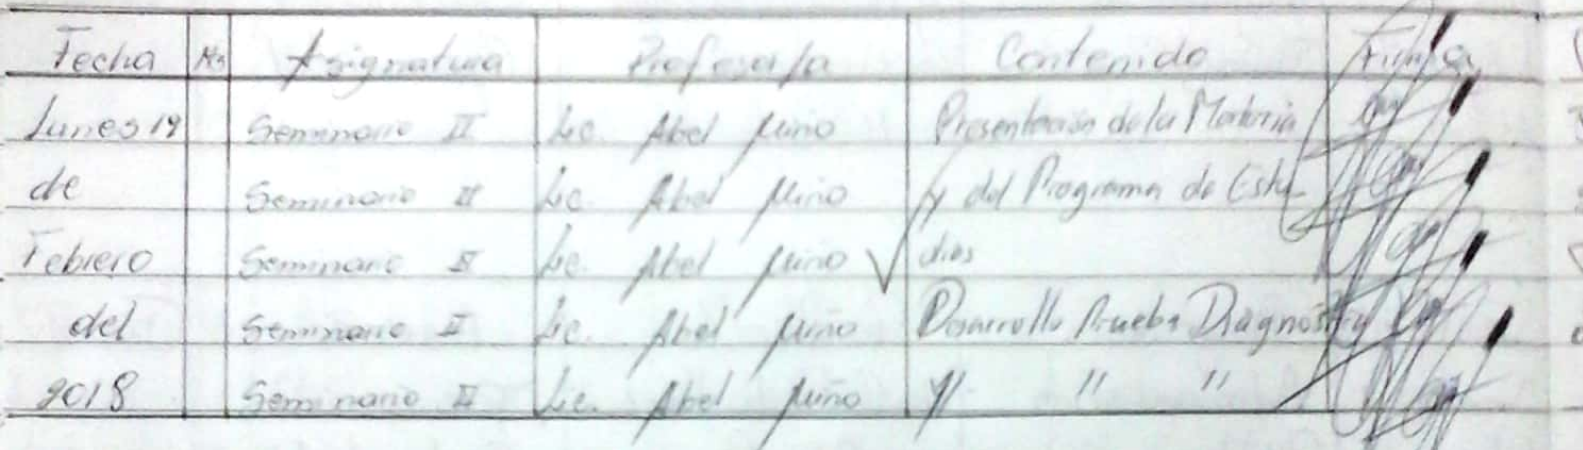 Fecha Hs Asignatura Profesor/a Contenido Firma
Lunes 19 Seminario II Lic. Abel Miño Presentación de la Materia
de Seminario II Lic. Abel Miño y del Programa de Estu-
Febrero Seminario II Lic. Abel Miño dios
del Seminario II Lic. Abel Miño Desarrollo Prueba Diagnóstica
2018 Seminario II Lic. Abel Miño " " "